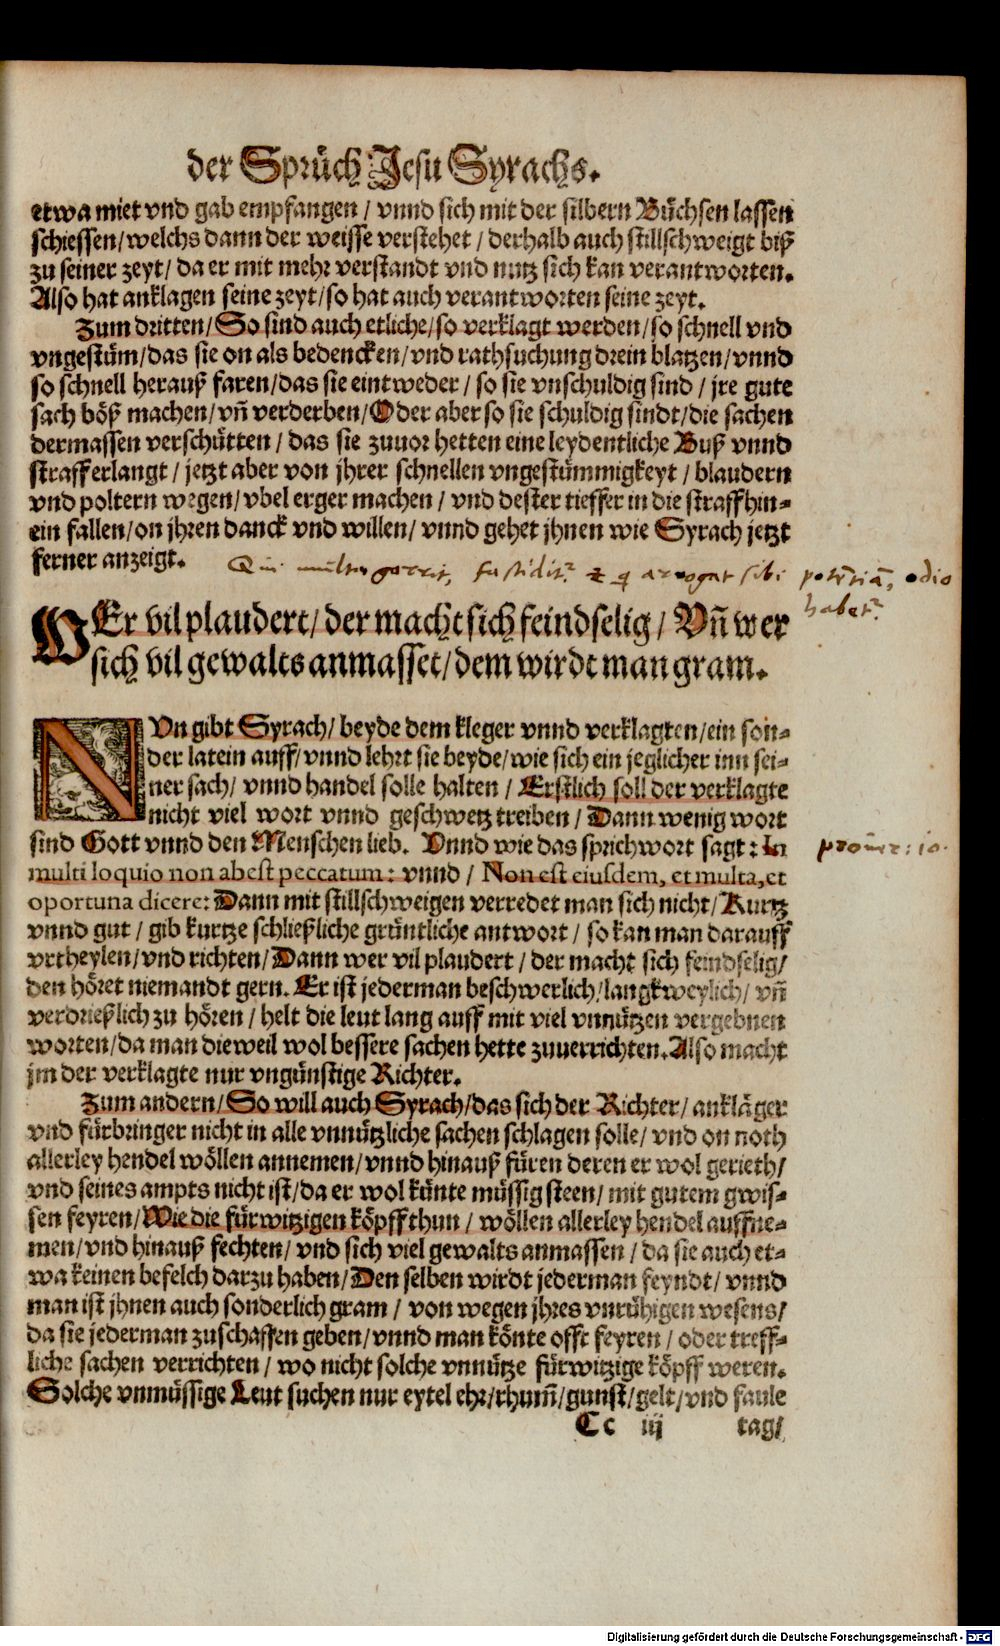 der Sprüch Jesu Syrachs.
etwa miet vnd gab empfangen / vnnd sich mit der silbern Büchsen lassen
schiessen/welchs dann der weisse verstehet / derhalb auch stillschweigt biß
zu seiner zeyt/ da er mit mehr verstandt vnd nutz sich kan verantworten.
Also hat anklagen seine zeyt/so hat auch verantworten seine zeyt.
Zum dritten/So sind auch etliche/so verklagt werden/so schnell vnd
vngestüm/das sie on als bedencken/vnd rathsuchung drein blatzen/vnnd
so schnell herauß faren/das sie eintweder / so sie vnschuldig sind / jre gute
sach böß machen/vñ verderben/Oder aber so sie schuldig sindt/die sachen
dermassen verschütten / das sie zuuor hetten eine leydentliche Buß vnnd
straff erlangt / jetzt aber von jhrer schnellen vngestümmigkeyt / blaudern
vnd poltern wegen/vbel erger machen / vnd dester tieffer in die straff hin-
ein fallen/on jhren danck vnd willen/ vnnd gehet jhnen wie Syrach jetzt
ferner anzeigt.
Qui multa garrit, fastidit: et q arrogat sibi potētiā, odio
habet:
WEr vil plaudert/der macht sich feindselig/ Vñ wer
sich vil gewalts anmasset/dem wirdt man gram.
NVn gibt Syrach/ beyde dem kleger vnnd verklagten/ein son-
der latein auff/vnnd lehrt sie beyde/wie sich ein jeglicher inn sei-
ner sach/ vnnd handel solle halten / Erstlich soll der verklagte
nicht viel wort vnnd geschwetz treiben / Dann wenig wort
sind Gott vnnd den Menschen lieb. Vnnd wie das sprichwort sagt: In
prouer: 10.
multi loquio non abest peccatum: vnnd / Non est eiusdem, et multa, et
oportuna dicere: Dann mit stillschweigen verredet man sich nicht/Kurtz
vnnd gut / gib kurtze schließliche grüntliche antwort / so kan man darauff
vrtheylen/vnd richten/Dann wer vil plaudert / der macht sich feindselig/
den höret niemandt gern. Er ist jederman beschwerlich/langkweylich/ vñ
verdrießlich zu hören / helt die leut lang auff mit viel vnnützen vergebnen
worten/da man dieweil wol bessere sachen hette zuuerrichten. Also macht
jm der verklagte nur vngünstige Richter.
Zum andern/So will auch Syrach/das sich der Richter/ ankläger
vnd fürbringer nicht in alle vnnützliche sachen schlagen solle/ vnd on noth
allerley hendel wöllen annemen/vnnd hinauß füren deren er wol gerieth/
vnd seines ampts nicht ist/da er wol künte müssig steen/ mit gutem gwis-
sen feyren/Wie die fürwitzigen köpff thun / wöllen allerley hendel auffne-
men/vnd hinauß fechten/ vnd sich viel gewalts anmassen / da sie auch et-
wa keinen befelch darzu haben/Den selben wirdt jederman feyndt/ vnnd
man ist jhnen auch sonderlich gram / von wegen jhres vnrühigen wesens/
da sie jederman zuschaffen geben/vnnd man könte offt feyren / oder treff-
liche sachen verrichten / wo nicht solche vnnütze fürwitzige köpff weren.
Solche vnmüssige Leut suchen nur eytel ehr/rhum̃/gunst/gelt/vnd faule
Cc iij tag/
Digitalisierung gefördert durch die Deutsche Forschungsgemeinschaft - DFG